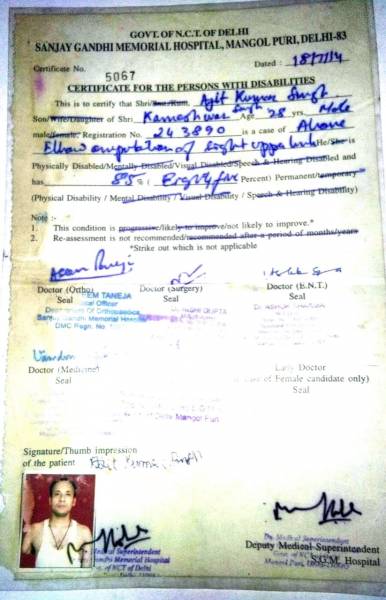 GOVT. OF N.C.T. OF DELHI
SANJAY GANDHI MEMORIAL HOSPITAL, MANGOL PURI, DELHI-83
Certificate No. 5067 Dated : 18/7/14
CERTIFICATE FOR THE PERSONS WITH DISABILITIES
This is to certify that Shri/Smt/Kum. Ajit Kumar Singh
Son/Wife/Daughter of Shri Kameshwar Singh Age 28 yrs. Male
male/female, Registration No. 243890 is a case of Above
Elbow amputation of right upper limb He/She is
Physically Disabled/Mentally Disabled/Visual Disabled/Speech & Hearing Disabled and
has 85 % ( Eighty five Percent) Permanent/temporary
(Physical Disability / Mental Disability / Visual Disability / Speech & Hearing Disability)
Note :-
1. This condition is progressive/likely to improve/not likely to improve.*
2. Re-assessment is not recommended/recommended after a period of months/years
*Strike out which is not applicable
Doctor (Ortho) Doctor (Surgery) Doctor (E.N.T.)
Seal Seal Seal
TANEJA
Department Of Orthopaedics
Sanjay Gandhi Memorial Hospital
DMC Regn. No.
GUPTA
Doctor (Medicine) Lady Doctor
Seal (case of Female candidate only)
Seal
Mangol Puri
Signature/Thumb impression
of the patient
Medical Superintendent
Sanjay Gandhi Memorial Hospital
Govt. of NCT of Delhi
Deputy Medical Superintendent
S.G.M. Hospital